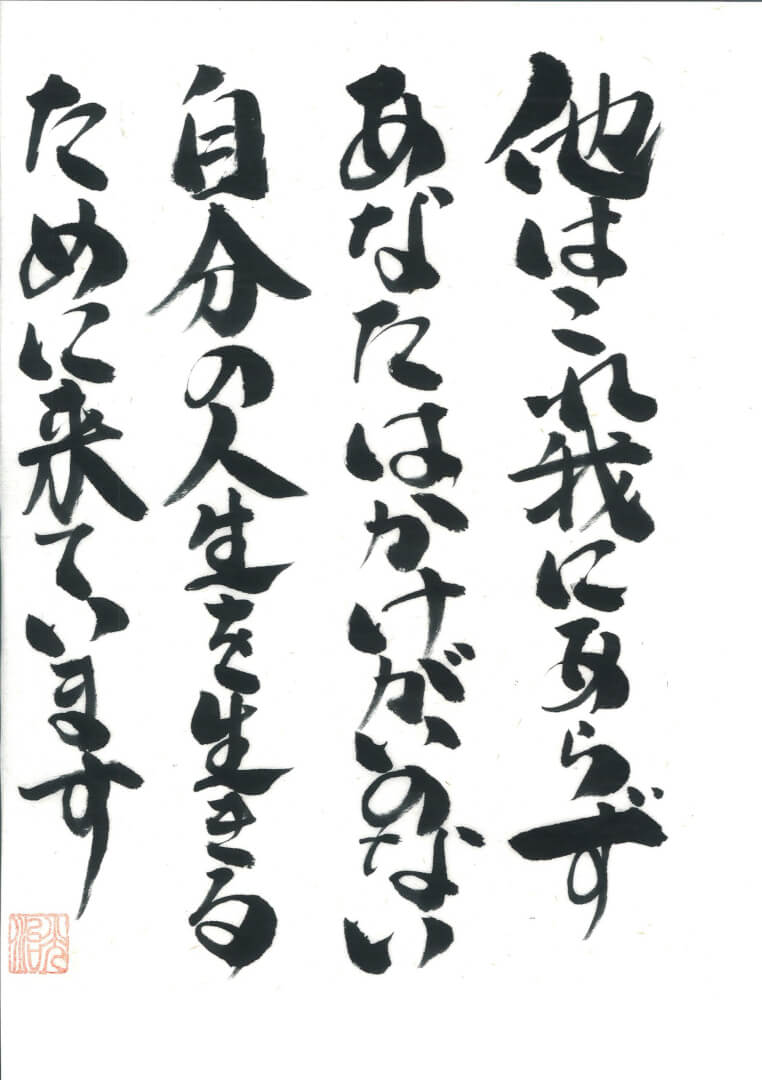 他はこれ我にあらず
あなたはかけがいのない
自分の人生を生きる
ために来ています